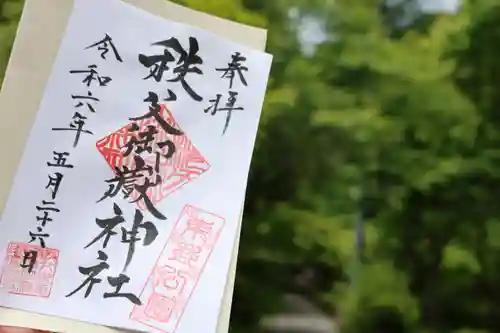 奉拝
秩父御嶽神社
令和六年五月二十六日
東郷公園